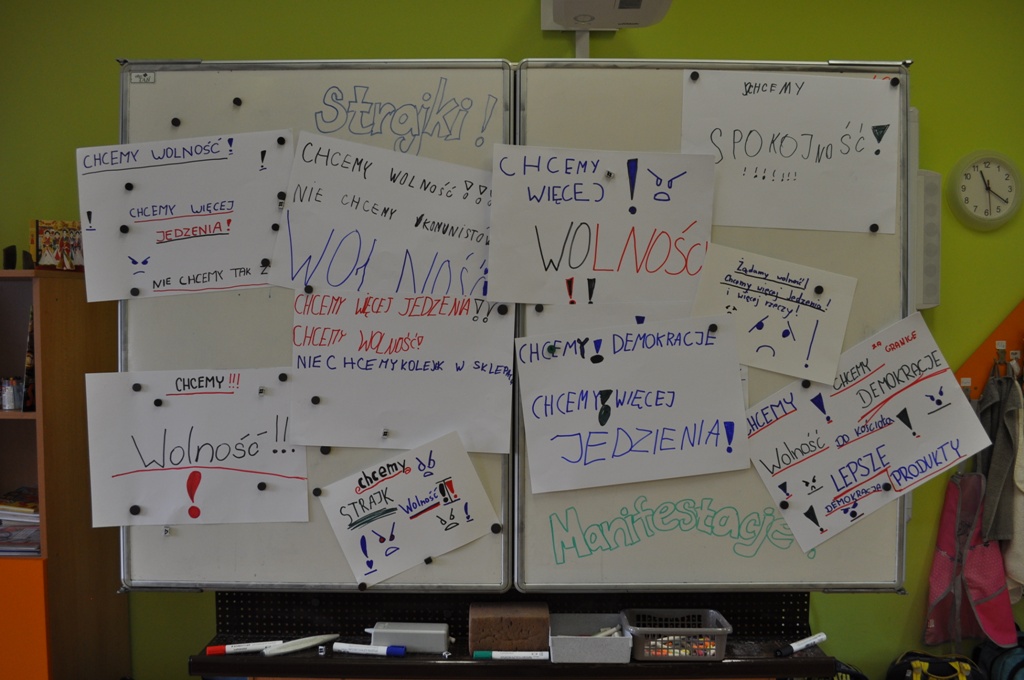 Strajki!
CHCEMY WOLNOŚĆ!
!
!
CHCEMY WIĘCEJ
JĘDZENIA!
NIE CHCEMY TAK Ż
CHCEMY WOLNOŚĆ!!!
NIE CHCEMY KOMUNISTÓW
WOLNOŚĆ
CHCEMY WIĘCEJ JEDZENIA!!
CHCEMY WOLNOŚĆ!
NIE CHCEMY KOLEJEK W SKLEPA
CHCEMY!!!
Wolność!!!
!
chcemy
STRAJK
Wolność!!
!
CHCEMY
WIĘCEJ !
WOLNOŚĆ
!!
CHCEMY
SPOKOJNOŚĆ!
!!!!!!
Żądamy wolność!
Chcemy więcej Jedzenia!
i więcej rzeczy!
!
CHCEMY! DEMOKRACJE
CHCEMY! WIĘCEJ
JEDZIENIA!
CHCEMY ZA GRANICE
CHCEMY! DEMOKRACJE
Wolność DO KOŚCIOŁA !
! LEPSZE PRODUKTY
! DEMOKRACJA
Manifestacje!